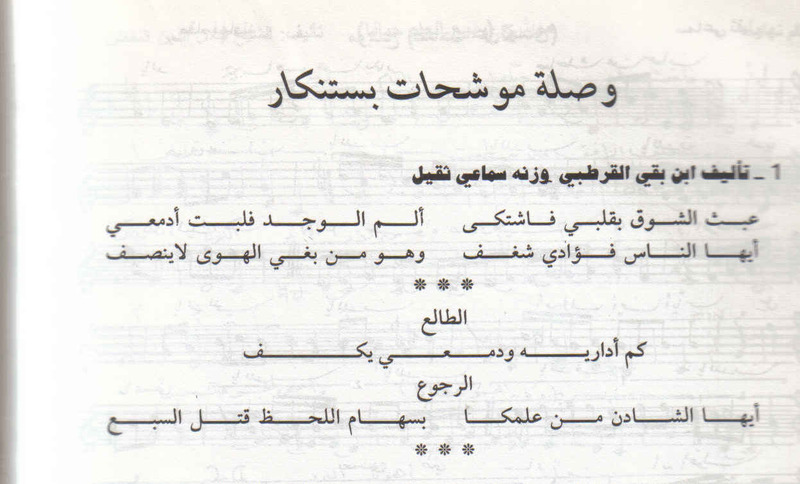 وصلة موشحات بستنكار
1 ـ تأليف ابن بقي القرطبي وزنه سماعي ثقيل
عبث الشوق بقلبي فاشتكى ألم الوجد فلبت أدمعي
أيها الناس فؤادي شغف وهو من بغي الهوى لاينصف
* * *
الطالع
كم أداريه ودمعي يكف
الرجوع
أيها الشادن من علمكا بسهام اللحظ قتل السبع
* * *